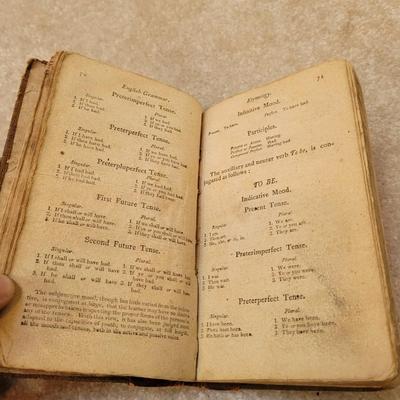 70
English Grammar.
Preterimperfect Tense.
Singular. Plural.
1. If I had. 1. If we had.
2. If thou had. 2. If ye or you had.
3. If he had. 3. If they had.
Preterperfect Tense.
Singular. Plural.
1. If I have had. 1. If we have had.
2. If 2. If ye or you have had.
3. If he have had. 3. If they have had.
Preterpluperfect Tense.
Singular. Plural.
1. If I had had. 1. If we had had.
2. If thou had 2. If ye or you had had.
3. If he had had. 3. If they had had.
First Future Tense.
Singular. Plural.
1. If I shall or will have. 1. If we shall or will have.
2. If thou shall or will have. 2. If ye or you shall or will have.
3. If he shall or will have. 3. If they shall or will have.
Second Future Tense.
Singular. Plural.
1. If I shall or will have had. 1. If we shall or will have had.
2. If thou shall or will have had. 2. If ye or you shall or will have had.
3. If he shall or will have had. 3. If they shall or will have had.
The subjunctive mood, though but little varied from the indicative, is conjugated at large, that the learner may have no
or misapprehension respecting the proper form of the
any of the tenses. With this view, it has also been judged most
adapted to the capacities of youth, to conjugate, at full length,
all the moods and tenses, both in the active and passive voice.
Etymology. 71
Infinitive Mood.
Present. To have. Perfect. To have had.
Participles.
Present or Active. Having
Perfect or Passive. Had
Compound Perfect. Having had
The auxiliary and neuter verb To be, is conjugated as follows:
TO BE.
Indicative Mood.
Present Tense.
Singular. Plural.
1. I am. 1. We are.
2. Thou art. 2. Ye or you are.
3. He, she, or it, is. 3. They are.
Preterimperfect Tense.
Singular. Plural.
1. I was. 1. We were.
2. Thou wast. 2. Ye or you were.
3. He was. 3. They were.
Preterperfect Tense.
Singular. Plural.
1. I have been. 1. We have been.
2. Thou hast been. 2. Ye or you have been.
3. He hath or has been. 3. They have been.